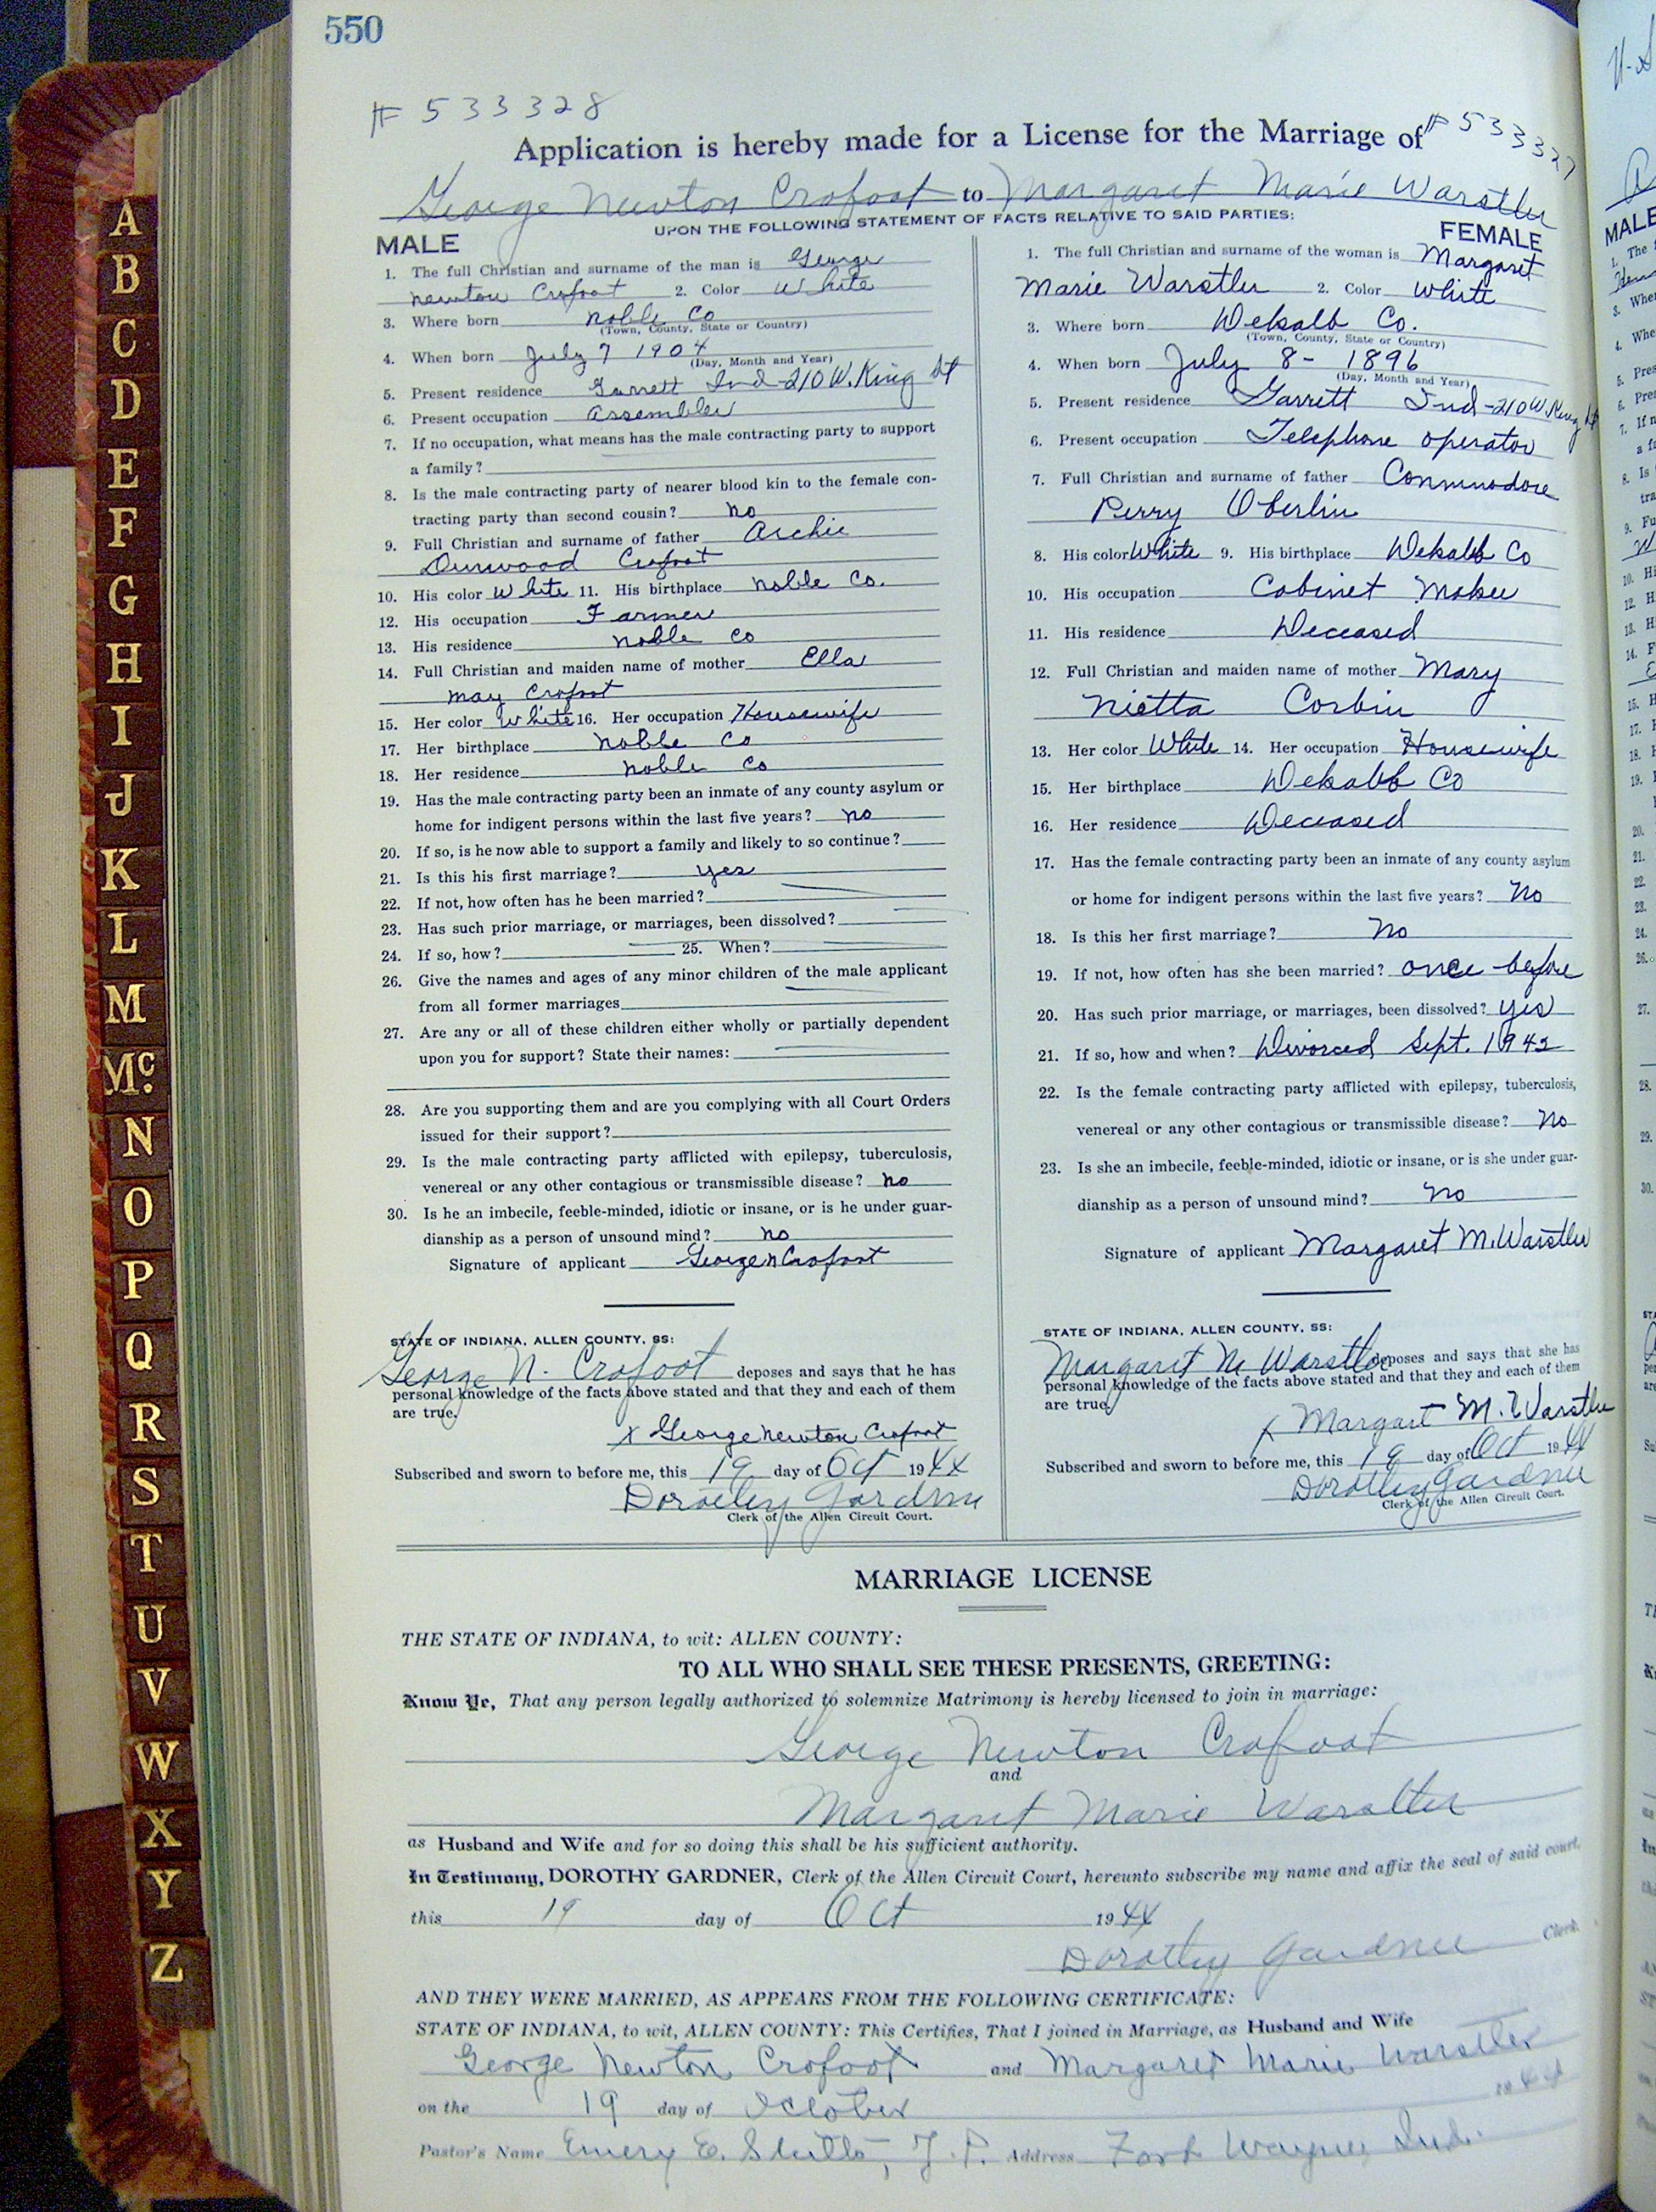 550
# 533328
# 533327
Application is hereby made for a License for the Marriage of
George Newton Crofoot to Margaret Marie Warstler
UPON THE FOLLOWING STATEMENT OF FACTS RELATIVE TO SAID PARTIES:
MALE
1. The full Christian and surname of the man is George
Newton Crofoot 2. Color White
3. Where born Noble Co
(Town, County, State or Country)
4. When born July 7 1904
(Day, Month and Year)
5. Present residence Garrett Ind-210 W. King St
6. Present occupation Assembler
7. If no occupation, what means has the male contracting party to support
a family?
8. Is the male contracting party of nearer blood kin to the female con-
tracting party than second cousin? no
9. Full Christian and surname of father Archie
Durwood Crofoot
10. His color White 11. His birthplace Noble Co.
12. His occupation Farmer
13. His residence Noble Co
14. Full Christian and maiden name of mother Ella
May Crofoot
15. Her color White 16. Her occupation Housewife
17. Her birthplace Noble Co
18. Her residence Noble Co
19. Has the male contracting party been an inmate of any county asylum or
home for indigent persons within the last five years? no
20. If so, is he now able to support a family and likely to so continue?
21. Is this his first marriage? yes
22. If not, how often has he been married?
23. Has such prior marriage, or marriages, been dissolved?
24. If so, how? 25. When?
26. Give the names and ages of any minor children of the male applicant
from all former marriages
27. Are any or all of these children either wholly or partially dependent
upon you for support? State their names:
28. Are you supporting them and are you complying with all Court Orders
issued for their support?
29. Is the male contracting party afflicted with epilepsy, tuberculosis,
venereal or any other contagious or transmissible disease? no
30. Is he an imbecile, feeble-minded, idiotic or insane, or is he under guar-
dianship as a person of unsound mind? no
Signature of applicant George N Crofoot
STATE OF INDIANA, ALLEN COUNTY, SS:
George N. Crofoot deposes and says that he has
personal knowledge of the facts above stated and that they and each of them
are true.
X George Newton Crofoot
Subscribed and sworn to before me, this 19 day of Oct 1944
Dorothy Gardner
Clerk of the Allen Circuit Court.
FEMALE
1. The full Christian and surname of the woman is Margaret
Marie Warstler 2. Color White
3. Where born Dekalb Co.
(Town, County, State or Country)
4. When born July 8- 1896
(Day, Month and Year)
5. Present residence Garrett Ind-210 W. King St
6. Present occupation Telephone operator
7. Full Christian and surname of father Commodore
Perry Oberlin
8. His color White 9. His birthplace Dekalb Co
10. His occupation Cabinet Maker
11. His residence Deceased
12. Full Christian and maiden name of mother Mary
Nietta Corbin
13. Her color White 14. Her occupation Housewife
15. Her birthplace Dekalb Co
16. Her residence Deceased
17. Has the female contracting party been an inmate of any county asylum
or home for indigent persons within the last five years? No
18. Is this her first marriage? No
19. If not, how often has she been married? once before
20. Has such prior marriage, or marriages, been dissolved? yes
21. If so, how and when? Divorced Sept. 1942
22. Is the female contracting party afflicted with epilepsy, tuberculosis,
venereal or any other contagious or transmissible disease? No
23. Is she an imbecile, feeble-minded, idiotic or insane, or is she under guar-
dianship as a person of unsound mind? No
Signature of applicant Margaret M. Warstler
STATE OF INDIANA, ALLEN COUNTY, SS:
Margaret M Warstler deposes and says that she has
personal knowledge of the facts above stated and that they and each of them
are true.
X Margaret M. Warstler
Subscribed and sworn to before me, this 19 day of Oct 1944
Dorothy Gardner
Clerk of the Allen Circuit Court.
MARRIAGE LICENSE
THE STATE OF INDIANA, to wit: ALLEN COUNTY:
TO ALL WHO SHALL SEE THESE PRESENTS, GREETING:
Know Ye, That any person legally authorized to solemnize Matrimony is hereby licensed to join in marriage:
George Newton Crofoot
and
Margaret Marie Warstler
as Husband and Wife and for so doing this shall be his sufficient authority.
In Testimony, DOROTHY GARDNER, Clerk of the Allen Circuit Court, hereunto subscribe my name and affix the seal of said court,
this 19 day of Oct 1944
Dorothy Gardner Clerk.
AND THEY WERE MARRIED, AS APPEARS FROM THE FOLLOWING CERTIFICATE:
STATE OF INDIANA, to wit, ALLEN COUNTY: This Certifies, That I joined in Marriage, as Husband and Wife
George Newton Crofoot and Margaret Marie Warstler
on the 19 day of October 1944
Pastor's Name Emery E. Shutts, J.P. Address Fort Wayne, Ind.
A
B
C
D
E
F
G
H
I
J
K
L
M
Mc.
N
O
P
Q
R
S
T
U
V
W
X
Y
Z